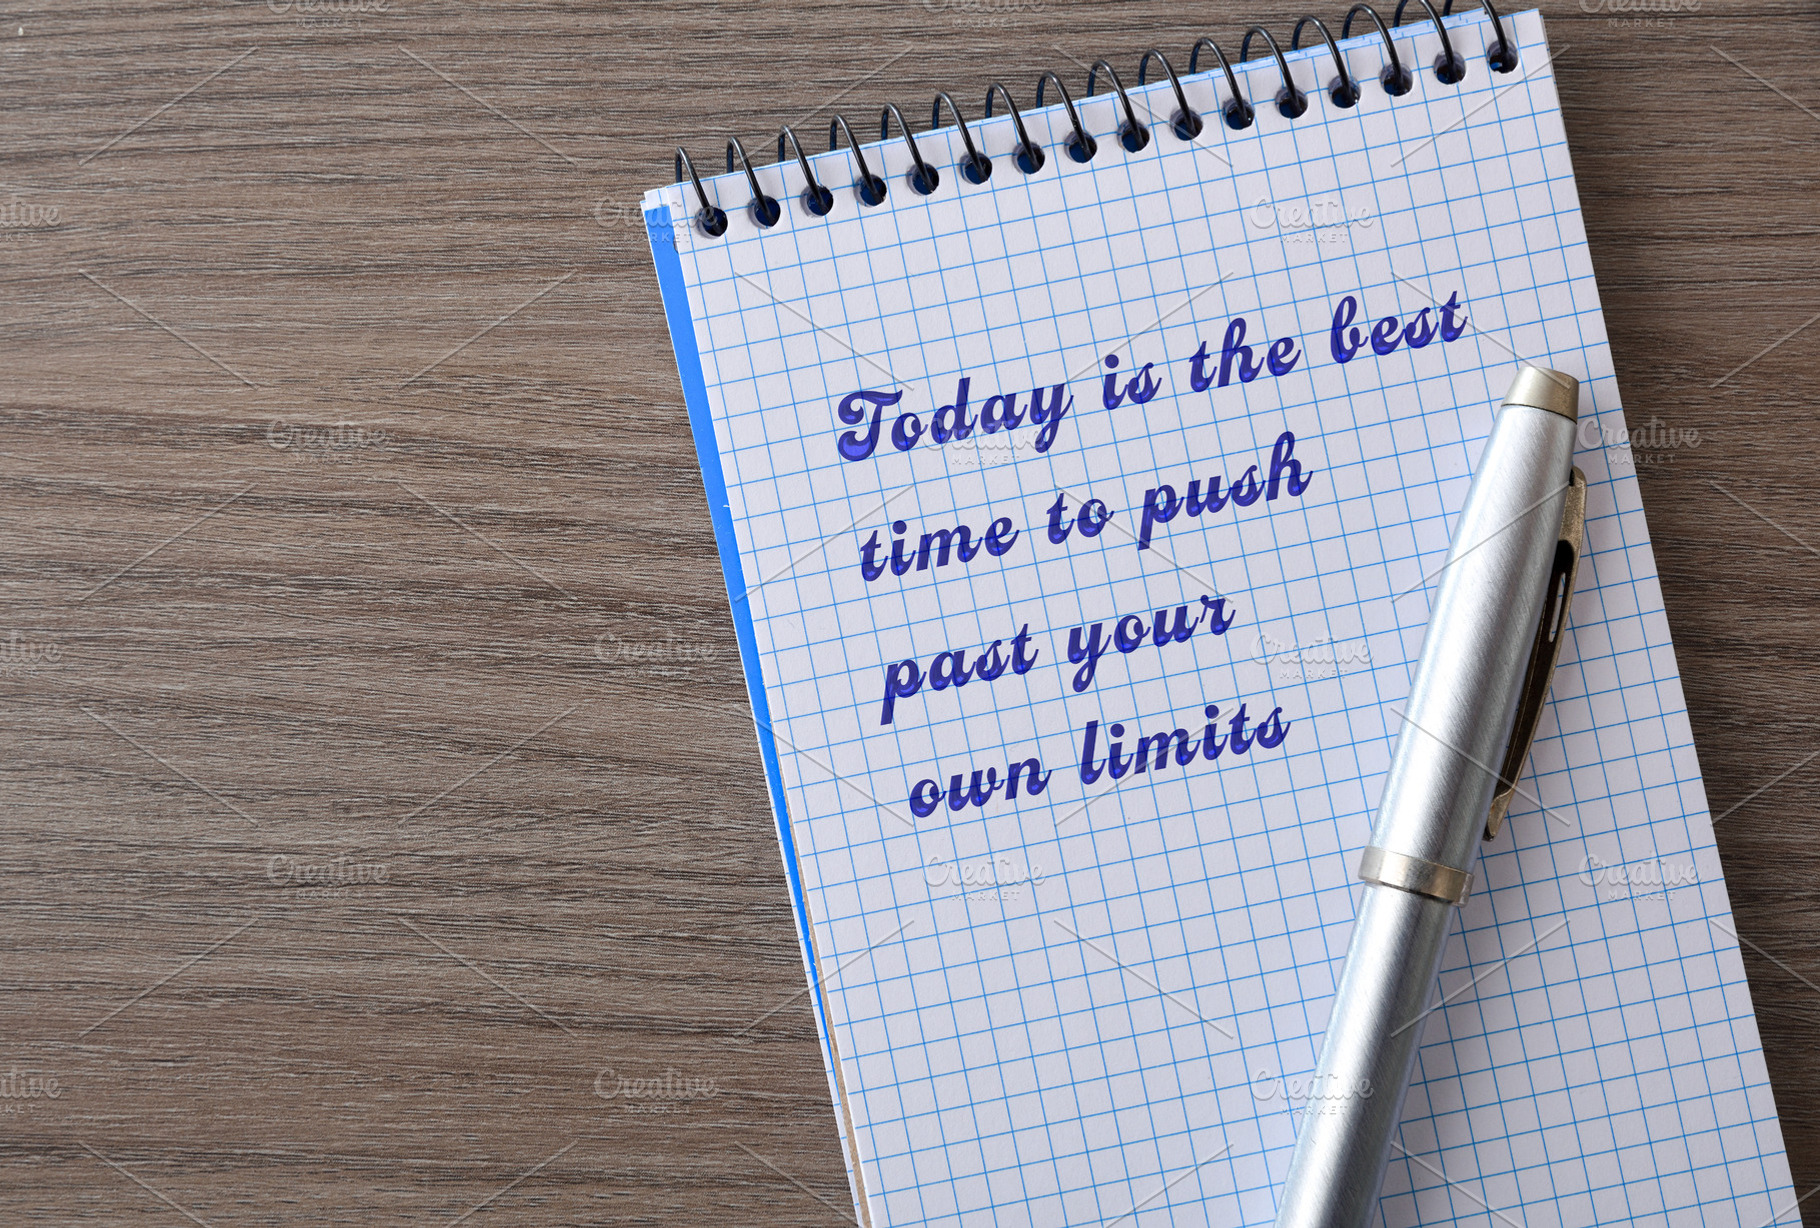 Today is the best
time to push
past your
own limits
Creative
MARKET